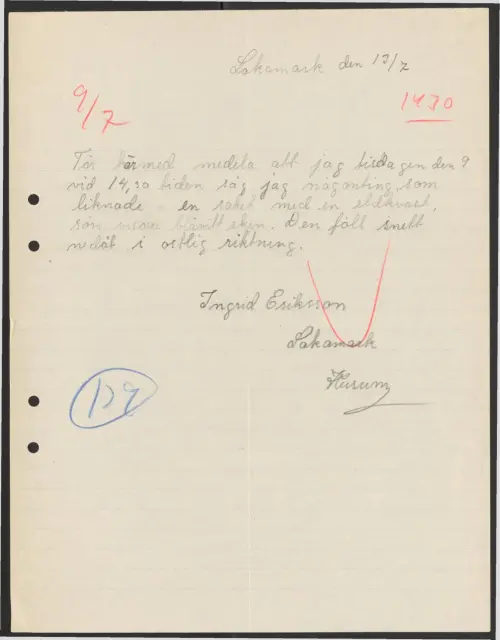 Lakamark den 13/7
9/7
1430
Tör härmed medela att jag tisdagen den 9
vid 14,30 tiden såg jag någonting som
liknade en raket med en eldkvast,
som blåvitt sken. Den föll snett
nedåt i ostlig riktning.
Ingrid Eriksson
Lakamark
Husum
129